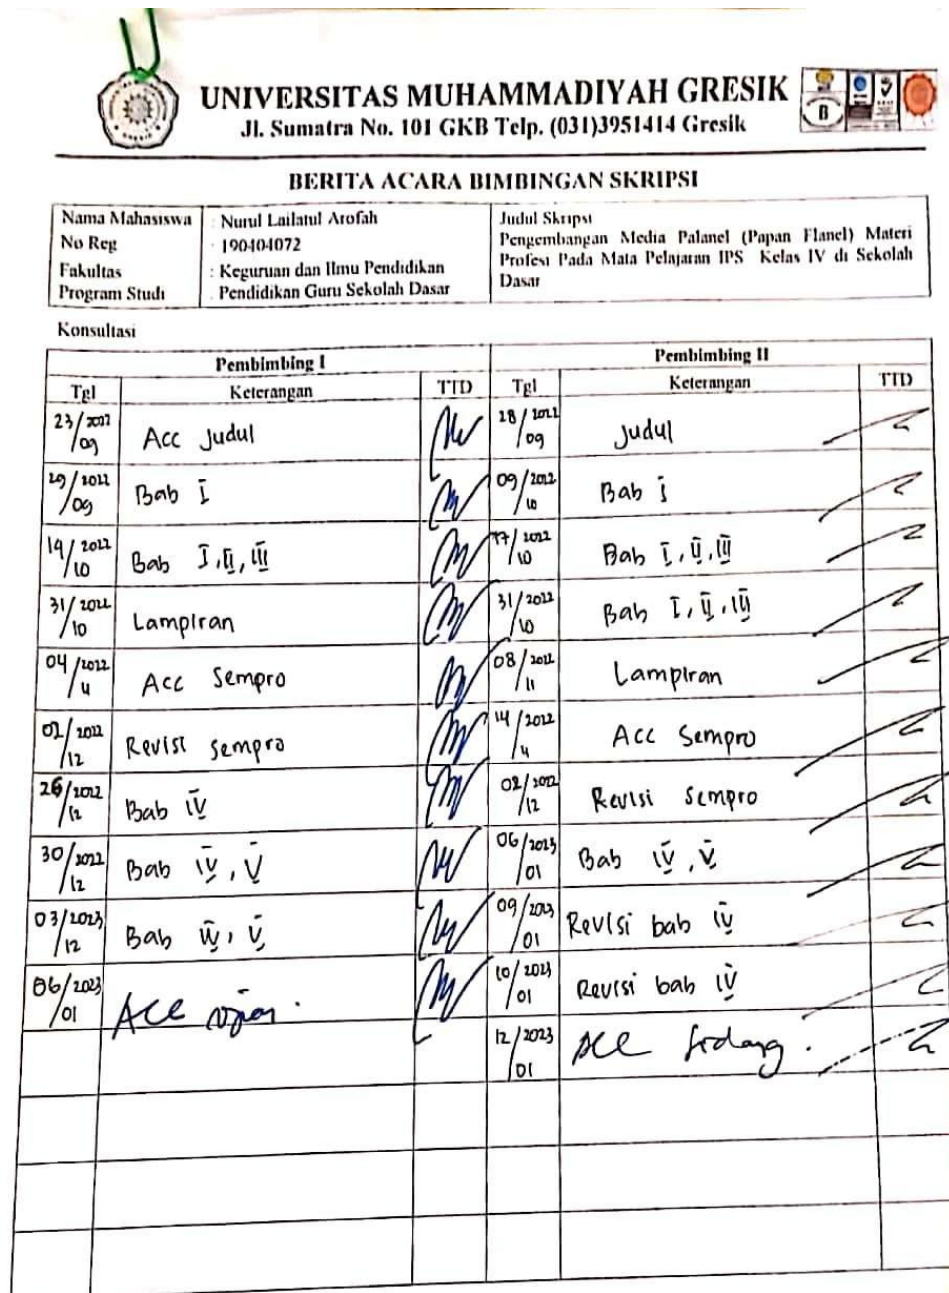 UNIVERSITAS MUHAMMADIYAH GRESIK
Jl. Sumatra No. 101 GKB Telp. (031)3951414 Gresik
BERITA ACARA BIMBINGAN SKRIPSI
Nama Mahasiswa : Nurul Lailatul Arofah
No Reg : 190404072
Fakultas : Keguruan dan Ilmu Pendidikan
Program Studi : Pendidikan Guru Sekolah Dasar
Judul Skripsi
Pengembangan Media Palanel (Papan Flanel) Materi
Profesi Pada Mata Pelajaran IPS Kelas IV di Sekolah
Dasar
Konsultasi
Pembimbing I Pembimbing II
Tgl Keterangan TTD Tgl Keterangan TTD
23/2022/09 Acc Judul 28/2022/09 Judul
29/2022/09 Bab I 09/2022/10 Bab I
14/2022/10 Bab I, II, III 17/2022/10 Bab I, II, III
31/2022/10 Lampiran 31/2022/10 Bab I, II, III
04/2022/11 Acc Sempro 08/2022/11 Lampiran
02/2022/12 Revisi sempro 14/2022/11 Acc Sempro
26/2022/12 Bab IV 02/2022/12 Revisi Sempro
30/2022/12 Bab IV, V 06/2023/01 Bab IV, V
03/2023/12 Bab IV, V 09/2023/01 Revisi bab IV
06/2023/01 ACC ujian. 10/2023/01 Revisi bab IV
12/2023/01 ACC Sidang.